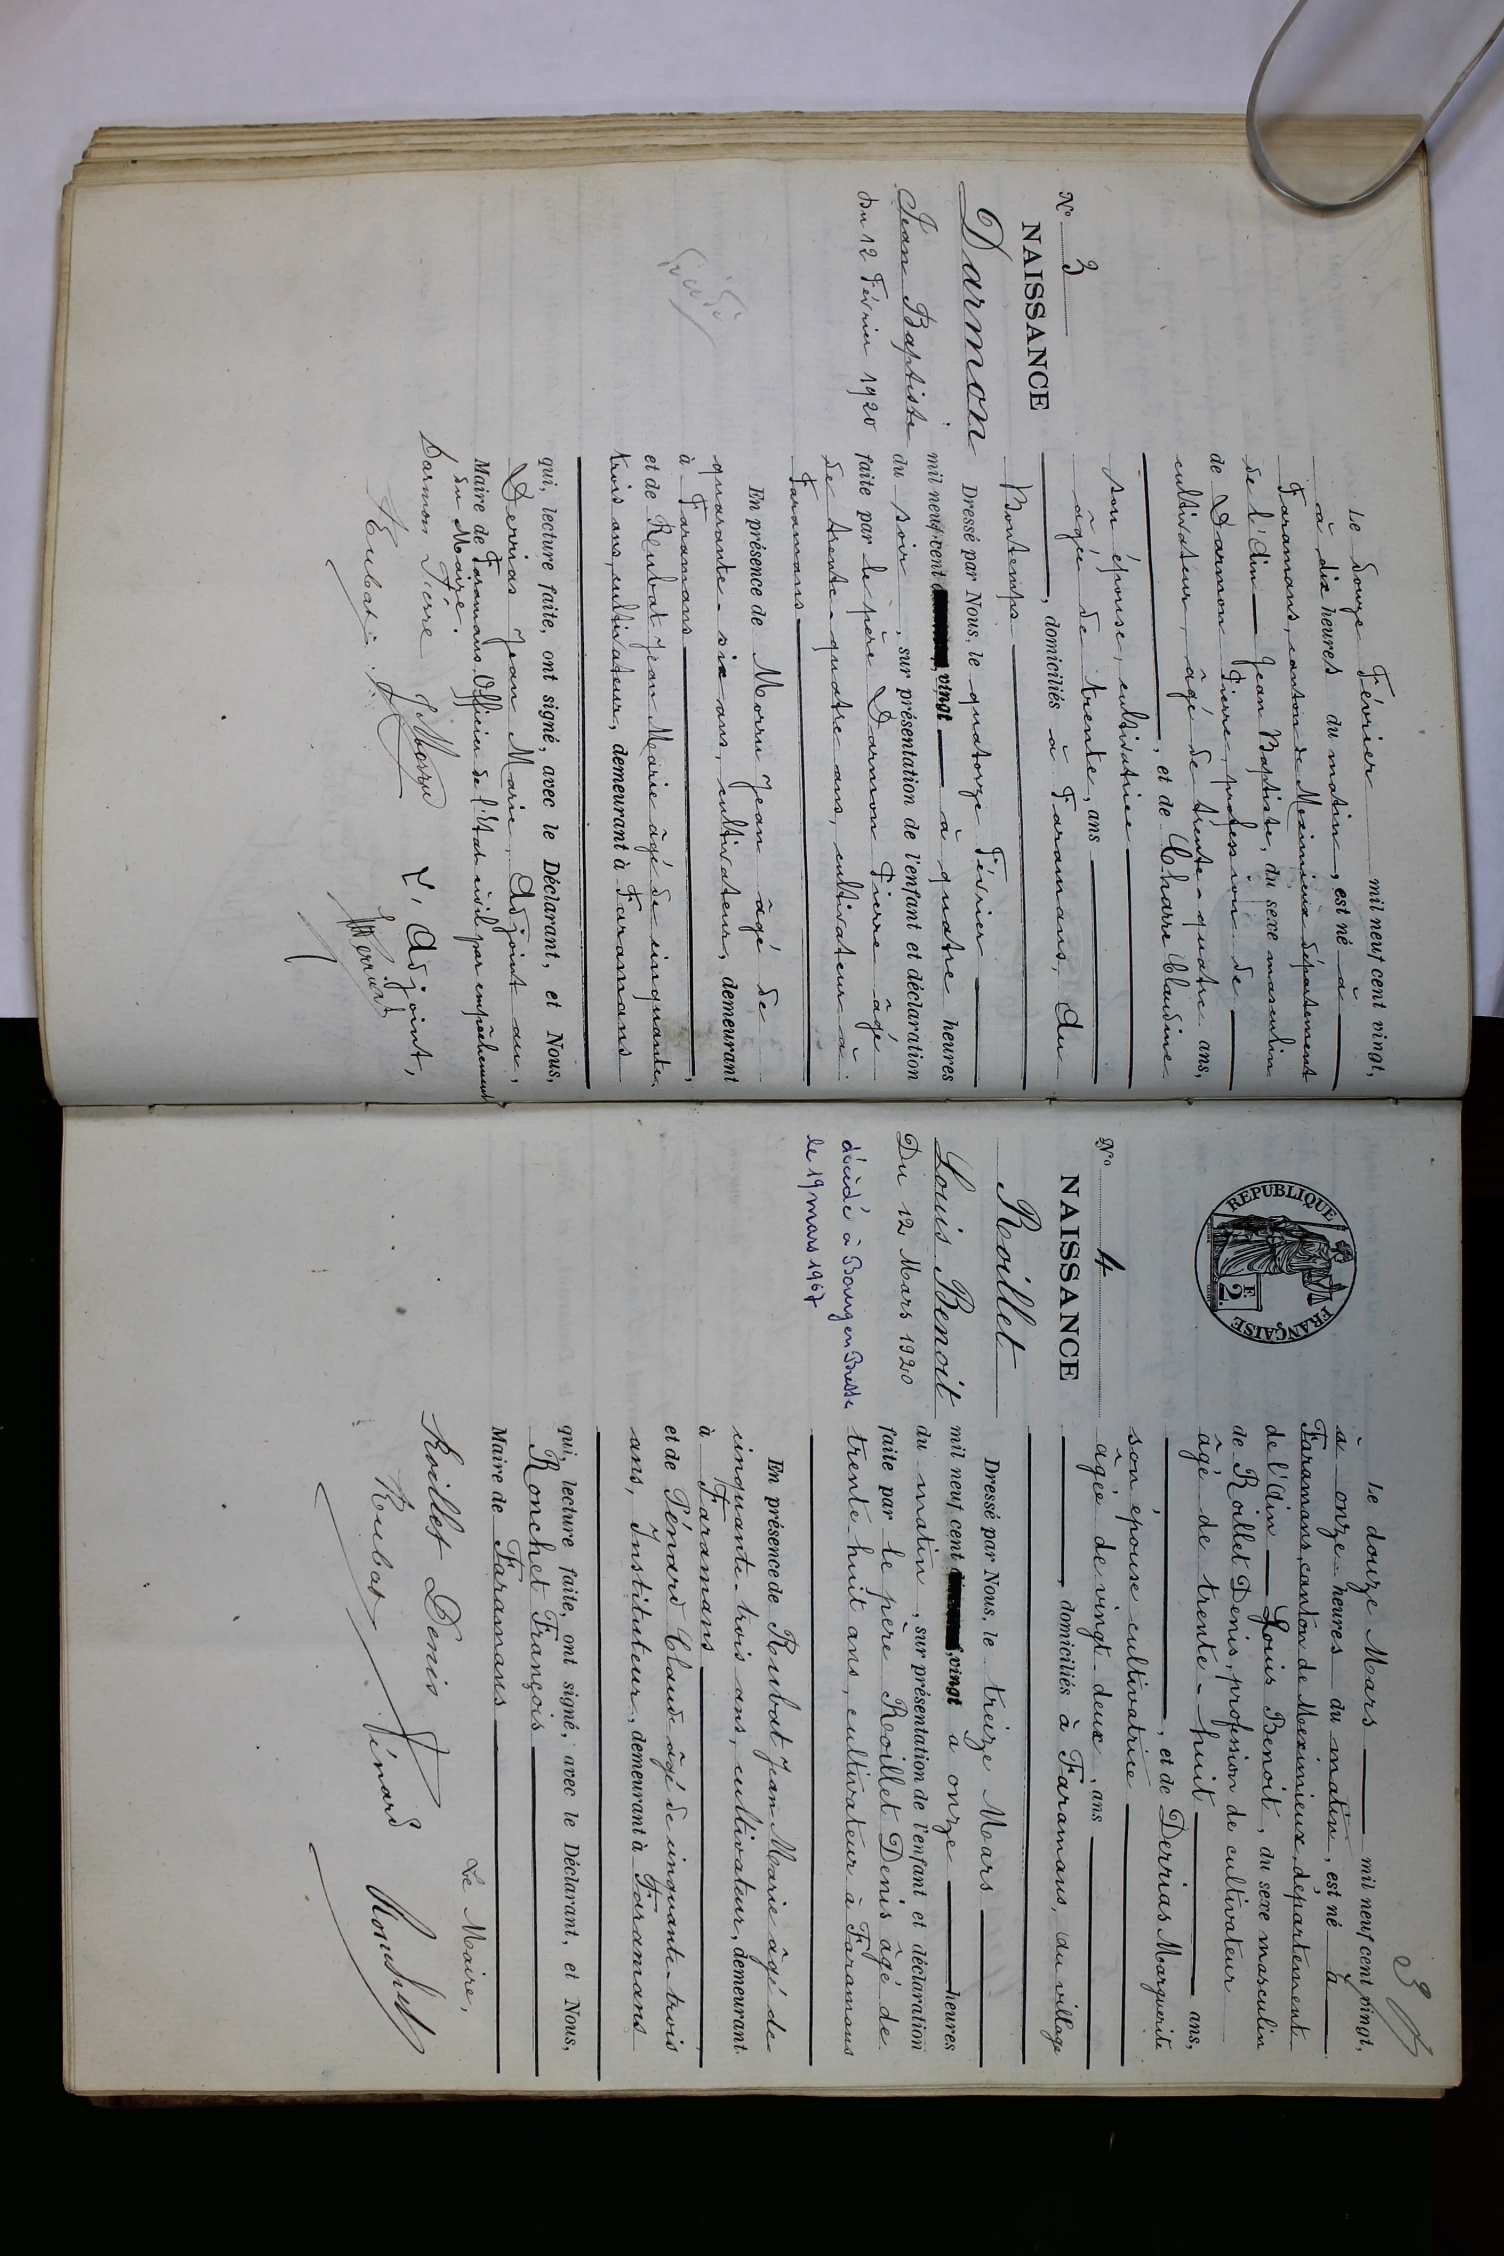 N° 3
NAISSANCE
Darmon
Jean Baptiste
Du 12 Février 1920
Le douze Février mil neuf cent vingt,
à dix heures du matin, est né à
Faramans, canton de Meximieux département
de l'Ain Jean Baptiste, du sexe masculin
de Darmon Pierre, profession de
cultivateur, âgé de trente-quatre ans,
et de Charre Claudine
son épouse, cultivatrice
âgée de trente, ans
domiciliés à Faramans, Au
Bontemps
Dressé par Nous, le quatorze Février
mil neuf cent vingt à quatre heures
du soir, sur présentation de l'enfant et déclaration
faite par le père Darmon Pierre âgé
de trente-quatre ans, cultivateur à
Faramans
En présence de Morru Jean âgé de
quarante-six ans, cultivateur, demeurant
à Faramans,
et de Rubat Jean Marie âgé de cinquante
trois ans, cultivateur, demeurant à Faramans
qui, lecture faite, ont signé, avec le Déclarant, et Nous,
Derrias Jean Marie, Adjoint au,
Maire de Faramans. Officier de l'état-civil par empêchement
du Maire.
Darmon Pierre J Morru L'Adjoint,
Rubat Derrias
9
REPUBLIQUE FRANÇAISE
2F
N° 4
NAISSANCE
Roillet
Louis Benoit
Du 12 Mars 1920
décédé à Bourg en Bresse
le 19 mars 1967
Le douze Mars mil neuf cent vingt,
à onze heures du matin, est né à
Faramans, canton de Meximieux, département
de l'Ain Louis Benoit, du sexe masculin
de Roillet Denis, profession de cultivateur
âgé de trente-huit ans,
et de Derrias Marguerite
son épouse cultivatrice
âgée de vingt-deux, ans
domiciliés à Faramans, au village
Dressé par Nous, le treize Mars
mil neuf cent vingt à onze heures
du matin, sur présentation de l'enfant et déclaration
faite par le père Roillet Denis âgé de
trente-huit ans, cultivateur à Faramans
En présence de Rubat Jean Marie âgé de
cinquante-trois ans, cultivateur, demeurant
à Faramans,
et de Pénard Claude âgé de cinquante-trois
ans, Instituteur, demeurant à Faramans
qui, lecture faite, ont signé, avec le Déclarant, et Nous,
Ronchet François
Maire de Faramans
Le Maire,
Roillet Denis
Rubat Pénard Ronchet